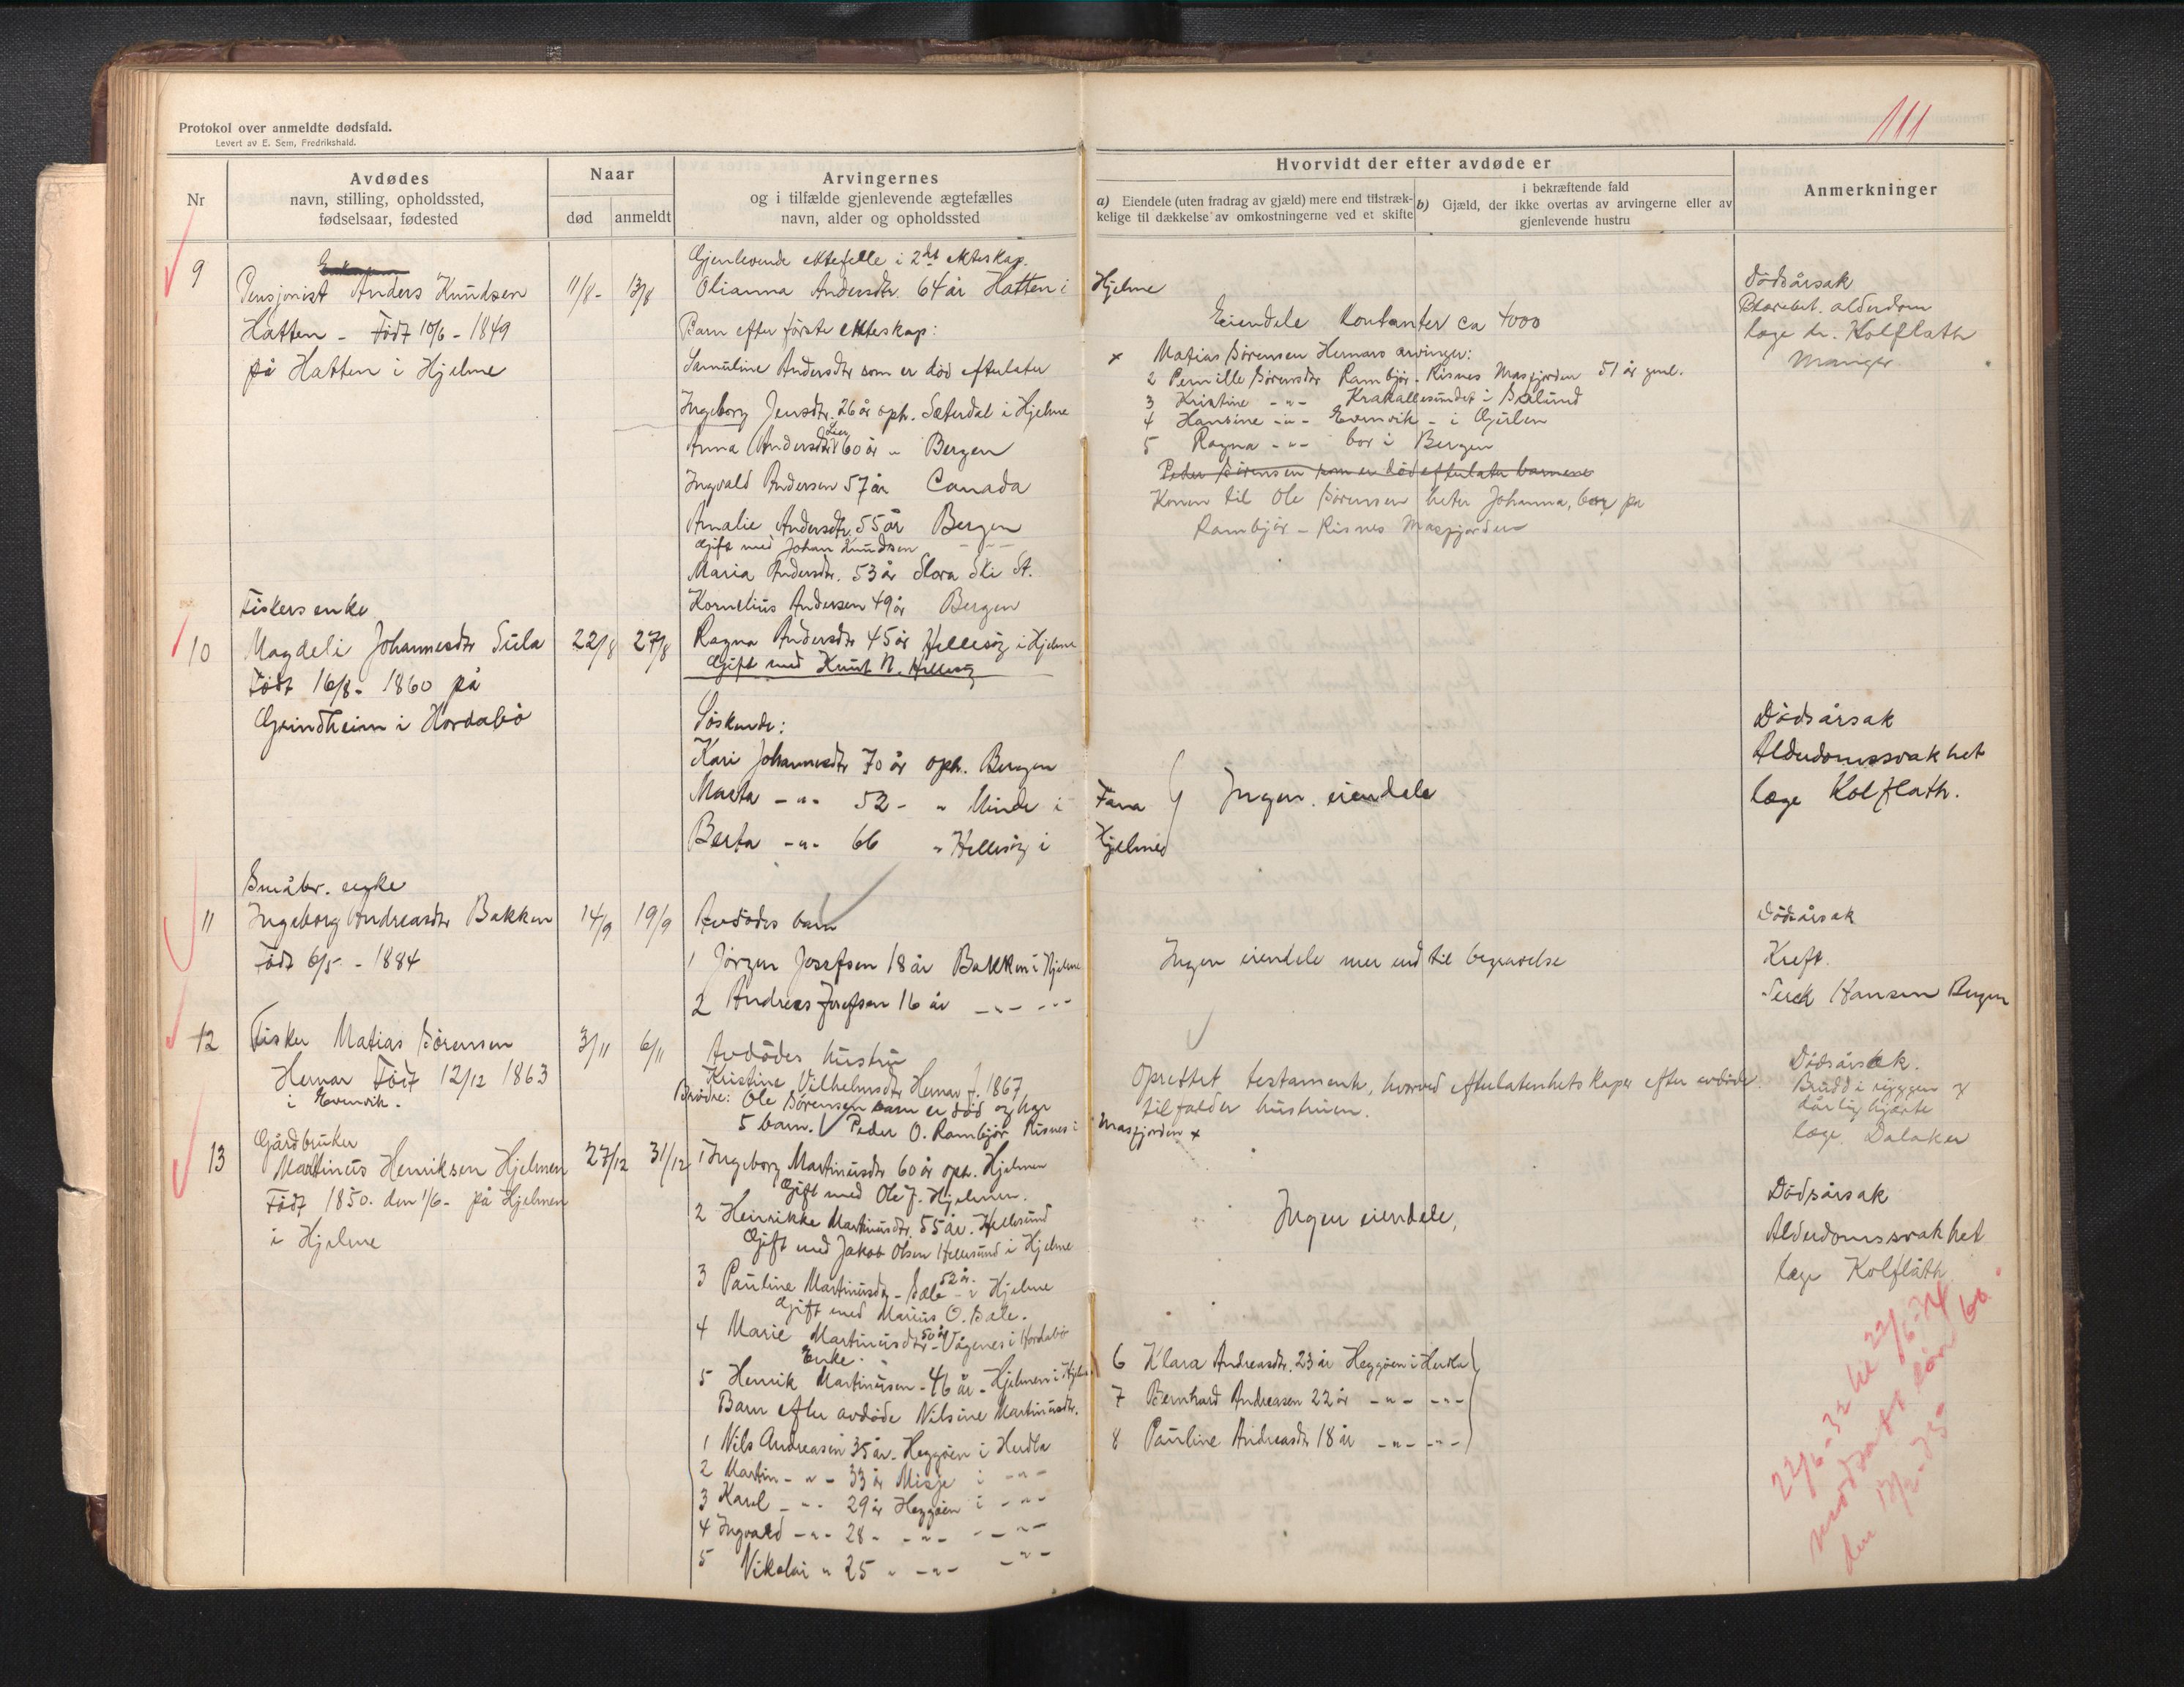 Protokol over anmeldte dødsfald.
Levert av E. Sem, Fredrikshald.
111
Nr
Avdødes
navn, stilling, opholdssted,
fødselsaar, fødested
Naar
død
anmeldt
Arvingernes
og i tilfælde gjenlevende ægtefælles
navn, alder og opholdssted
Hvorvidt der efter avdøde er
a) Eiendele (uten fradrag av gjæld) mere end tilstræk-
kelige til dækkelse av omkostningerne ved et skifte
i bekræftende fald
b) Gjæld, der ikke overtas av arvingerne eller av
gjenlevende hustru
Anmerkninger
9
Pensjonist Anders Knudsen
Hatten - Født 10/6 - 1849
på Hatten i Hjelme
11/8 -
13/8
Gjenlevende ektefelle i 2det ekteskap.
Olianna Andersdtr. 64 år Hatten i Hjelme
Barn efter første ekteskap:
Samuline Andersdtr som er død efterlater
Ingeborg Jensdtr. 26 år oph. Sæterdal i Hjelme
Anna Andersdtr 60 år " Bergen
Ingvald Andersen 57 år Canada
Amalie Andersdtr. 55 år Bergen
Gift med Johan Knudsen
Maria Andersdtr. 53 år Slora Ski St.
Kornelius Andersen 49 år Bergen
Ragna Andersdtr 45 år Hellesøy i Hjelme
Gift med Knut N. Hellesøy
Eiendele Kontanter ca 4000
x Matias Sørensen Hernars arvinger:
2 Pernille Sørensdtr Rambjør - Risnes Masfjorden 51 år gml.
3 Kristine - " - Krakallesundet i Brelund
4 Hansine - " - Evenvik - i Gulen
5 Ragna - " - bor i Bergen
Peder Sørensen som er død efterlater barnene
Konen til Ole Sørensen heter Johanna, bor på
Rambjør - Risnes Masfjorden
Dødsårsak
alderdom
læge dr. Kolflath
Manger
10
Fiskers enke
Magdeli Johannesdtr Sula
Født 16/8 - 1860 på
Grindheim i Hordabø
22/8
27/8
Søskende:
Kari Johannesdtr 70 år oph. Bergen
Marta - " - 52 - " Minde i Fana
Berta - " - 66 " Hellesøy i Hjelme
Ingen eiendele
Dødsårsak
Alderdomssvakhet
læge Kolflath.
11
Småbr. enke
Ingeborg Andreasdtr Bakken
Født 6/5 - 1884
14/9
19/9
Avdødes barn
1 Jørgen Josefsen 18 år Bakken i Hjelme
2 Andreas Josefsen 16 år - " - - " -
Ingen eiendele mer end til begravelse
Dødsårsak
Kreft.
Hansen Bergen
12
Fisker Matias Sørensen
Hernar Født 12/12 1863
i Evenvik.
3/11
6/11
Avdødes hustru
Kristine Vilhelmsdtr Hernar f. 1867
Brødre: Ole Sørensen som er død og har
5 barn. Peder O. Rambjør Risnes i Masfjorden x
Oprettet testamente, hvorved efterlatenhetskaper efter avdøde
tilfalder hustruen.
Dødsårsak.
Brudd i ryggen og
dårlig hjerte
læge Dalaker
13
Gårdbruker
Martinus Henriksen Hjelmen
Født 1850. den 1/6 - på Hjelmen
i Hjelme
27/12
31/12
1 Ingeborg Martinusdtr 60 år oph. Hjelmen
Gift med Ole J. Hjelmen.
2 Henrikke Martinusdtr. 55 år. Hellesund
Gift med Jakob Olsen Hellesund i Hjelme
3 Pauline Martinusdtr - Bale 52 år. i Hjelme
Gift med Marius O. Bale.
4 Marie Martinusdtr 50 år - Vågenes i Hordabø
Enke.
5 Henrik Martinusen - 46 år - Hjelmen i Hjelme
Barn efter avdøde Nilsine Martinusdtr.
1 Nils Andreasen 35 år. Heggøen i Herdla
2 Martin - " - 33 år Misje i - " -
3 Karl - " - 29 år Heggøen i - " -
4 Ingvard - " - 28 - - " - - " -
5 Nikolai " 25 " - " - - " -
6 Klara Andreasdtr. 23 år Heggøen i Herdla
7 Bernhard Andreasen 22 år - " - - " -
8 Pauline Andreasdtr 18 år - " - - " -
Ingen eiendele,
Dødsårsak
Alderdomssvakhet
læge Kolflath
22/6-32 til 22/6-34